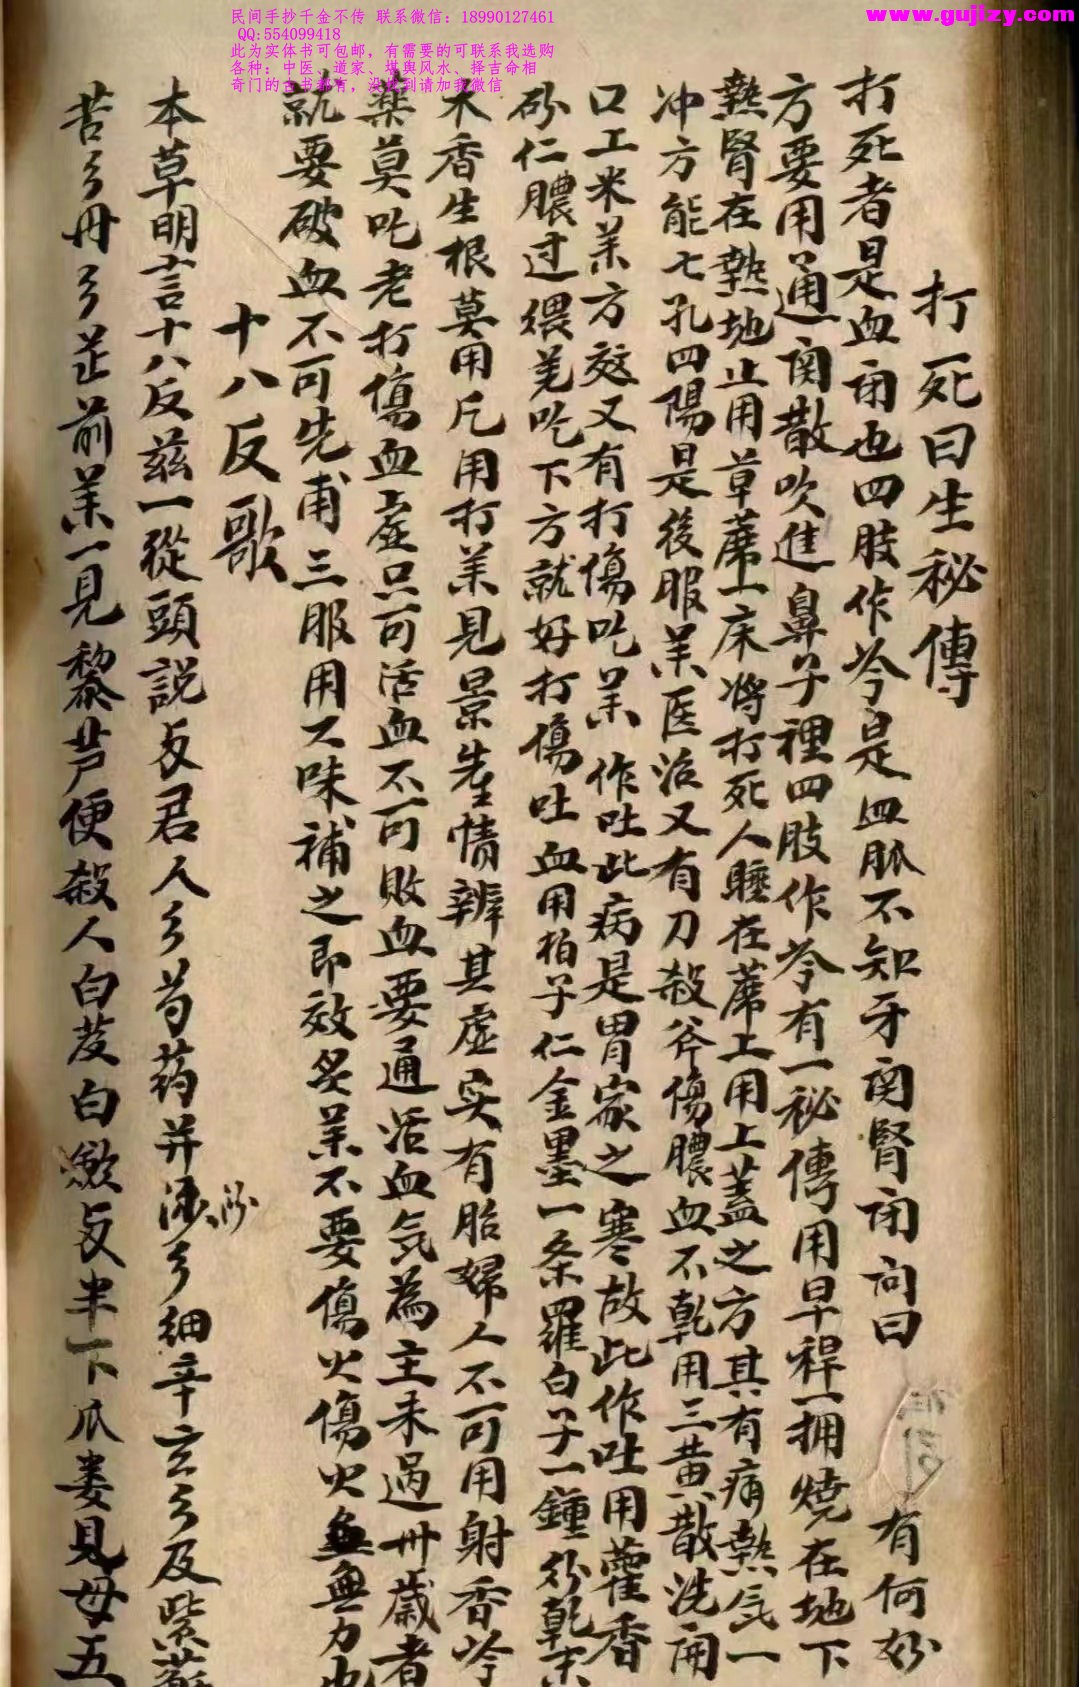 民间手抄千金不传 联系微信：18990127461
QQ:554099418
此为实体书可包邮，有需要的可联系我选购
各种：中医、道家、堪舆风水、择吉命相
奇门的古书都有，没找到请加我微信
www.gujizy.com
打死曰生秘傳
打死者是血闭也四肢作冷是血脈不知牙関腎闭问曰有何妙
方要用通関散吹進鼻子裡四肢作冷有一秘傳用早稈一捆燒在地下
熱腎在熱地止用草蓆一床将打死人睡在蓆上用上蓋之方其有病熱気一
冲方能七孔四陽是後服羊医治又有刀殺斧傷膿血不乾用三黄散洗闹
口工米羊方效又有打傷吃羊作吐此病是胃家之寒故此作吐用藿香
砂仁膿过煨羌吃下方就好打傷吐血用柏子仁金墨一条羅白子一鍾
木香生根莫用凡用打羊見景生情辨其虚实有胎婦人不可用射香冷
藥莫吃老打傷血虚只可活血不可敗血要通活血気為主未過卅歲者
就要破血不可先甫三服用大味補之即效炙羊不要傷火傷火無力
十八反歌
本草明言十八反兹一從頭説反君人彡芍药并沙彡細辛玄彡及紫
苦彡丹彡芷前羊一見黎芦便殺人白芨白歛反半下瓜蒌見母五